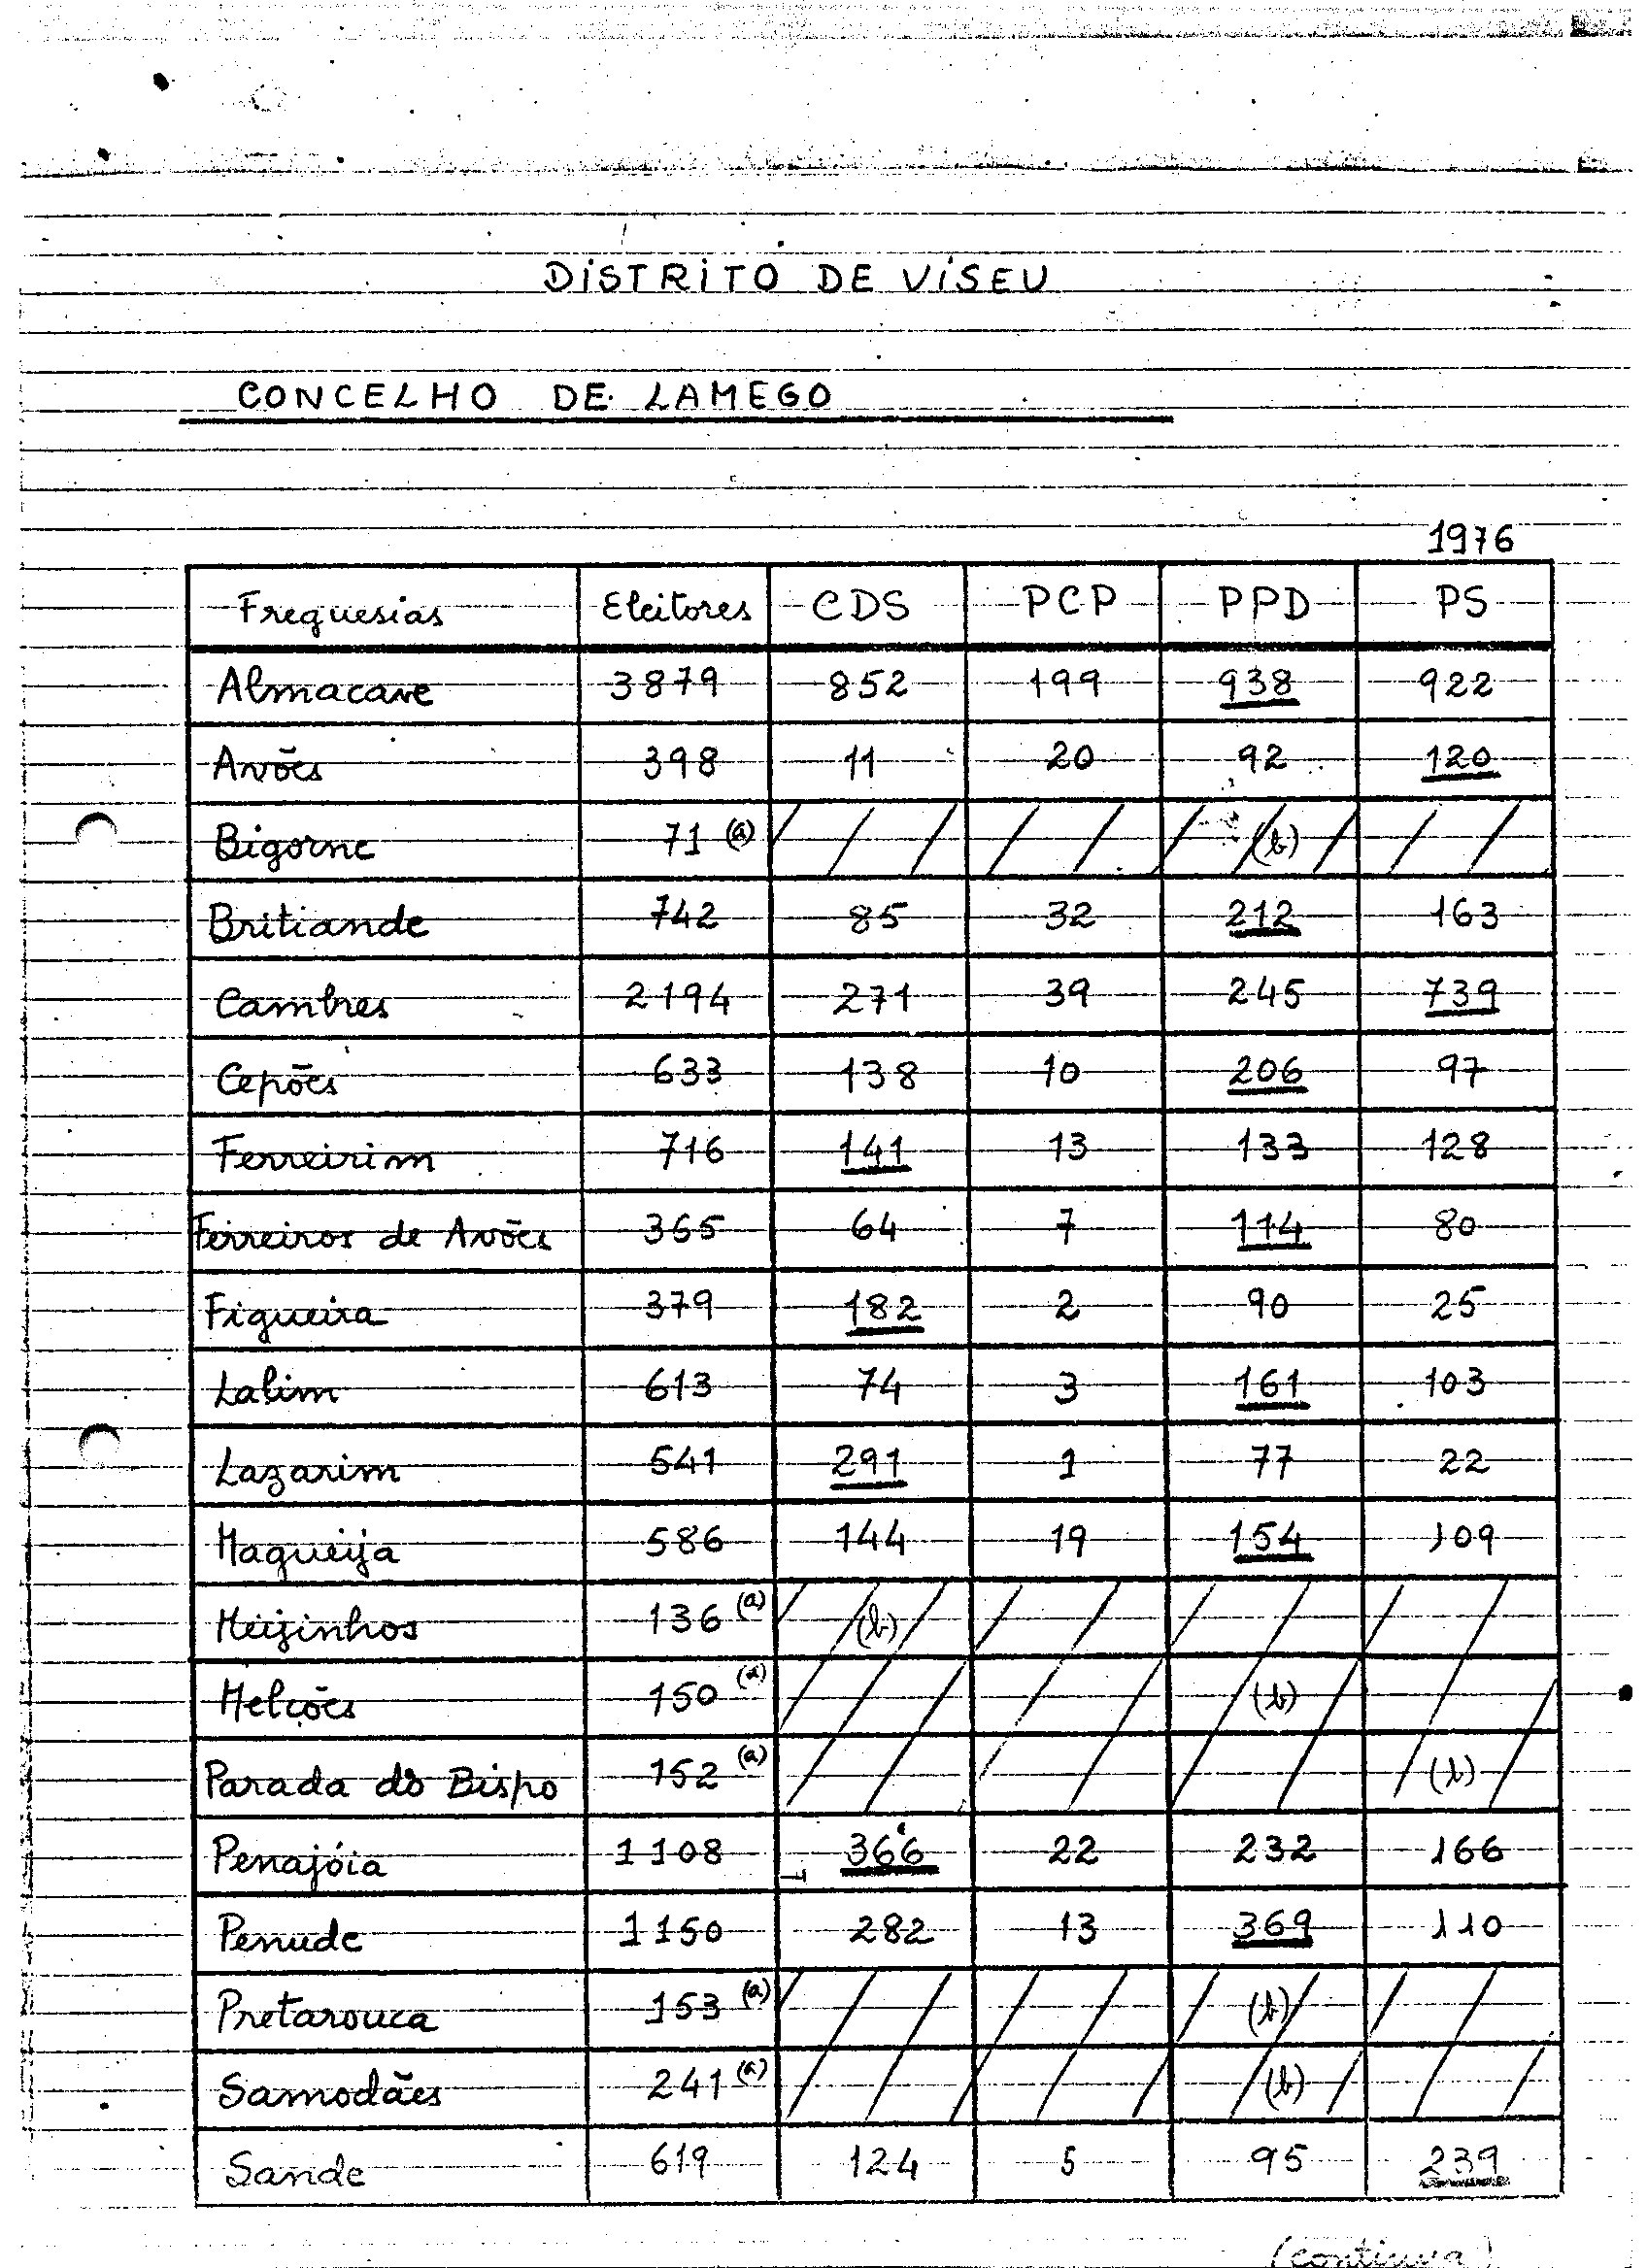 DISTRITO DE VISEU
CONCELHO DE LAMEGO
1976
Freguesias Eleitores CDS PCP PPD PS
Almacave 3879 852 199 938 922
Avões 398 11 20 92 120
Bigorne 71 (a) (b)
Britiande 742 85 32 212 163
Cambres 2194 271 39 245 739
Cepões 633 138 10 206 97
Ferreirim 716 141 13 133 128
Ferreiros de Avões 365 64 7 114 80
Figueira 379 182 2 90 25
Lalim 613 74 3 161 103
Lazarim 541 291 1 77 22
Magueija 586 144 19 154 109
Meijinhos 136 (a) (b)
Melcões 150 (a) (b)
Parada do Bispo 152 (a) (b)
Penajóia 1108 366 22 232 166
Penude 1150 282 13 369 110
Pretarouca 153 (a) (b)
Samodães 241 (a) (b)
Sande 619 124 5 95 239
(continua)